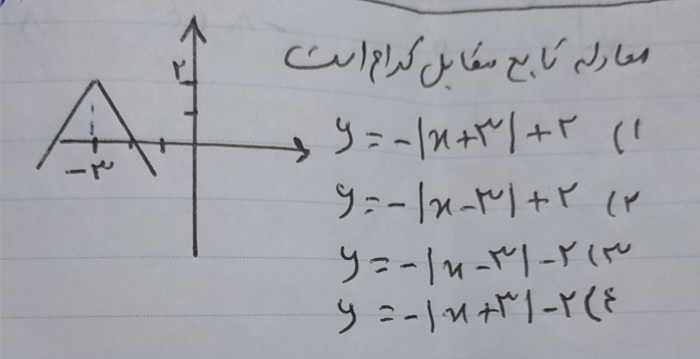 معادله تابع مقابل کدام است
۱) y = -|x+۳| + ۲
۲) y = -|x-۳| + ۲
۳) y = -|x-۳| - ۲
۴) y = -|x+۳| - ۲
۲
-۳